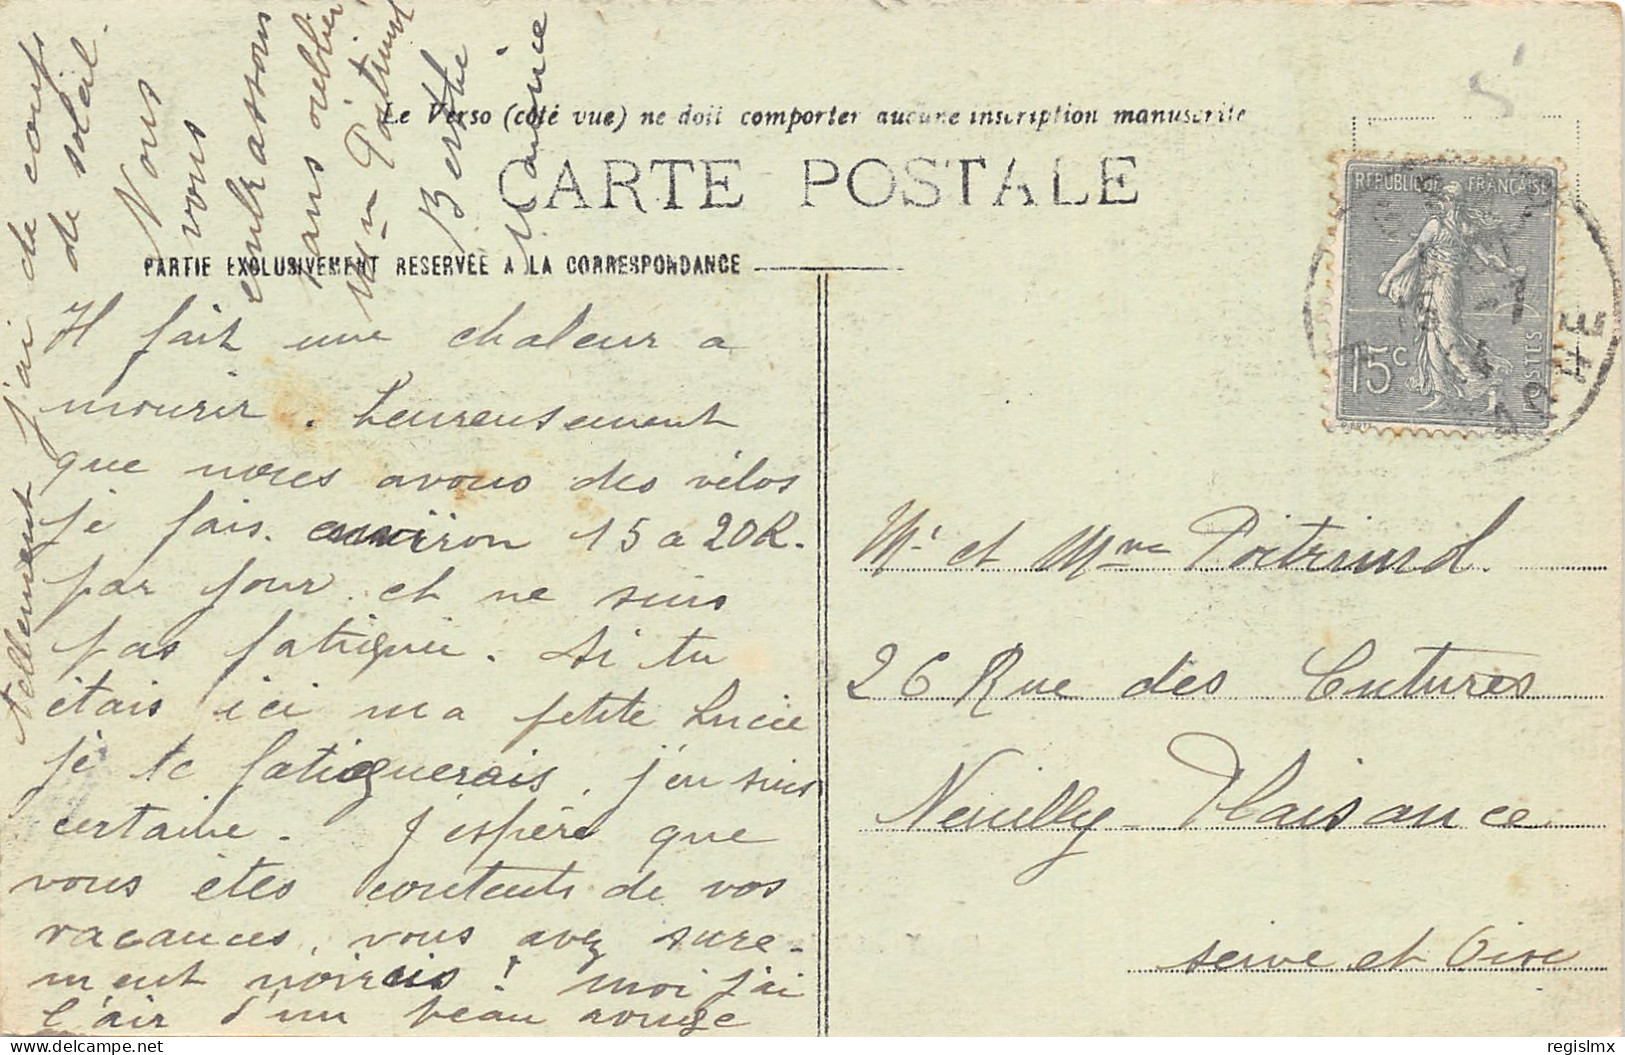 Le Verso (côté vue) ne doit comporter aucune inscription manuscrite
CARTE POSTALE
PARTIE EXCLUSIVEMENT RESERVÉE A LA CORRESPONDANCE
Il fait une chaleur a
mourir. Heureusement
que nous avons des vélos
je fais. environ 15 a 20K.
par jour. et ne suis
pas fatiguée. Si tu
étais ici ma petite Lucie
je te fatiguerais, j'en suis
certaine. J'espère que
vous êtes contents de vos
vacances, vous avez sure-
ment noircis ! moi j'ai
l'air d'un beau rouge
tellement j'ai de coups
de soleil.
Nous
vous
embrassons
sans oublier
Mme Poitrimol
Berthe
Maurice
REPUBLIQUE FRANÇAISE
15c
POSTES
ARCHE
Mr et Mme Poitrimol.
26 Rue des Cutures
Neuilly-Plaisance
seine et Oise
delcampe.net
regislmx